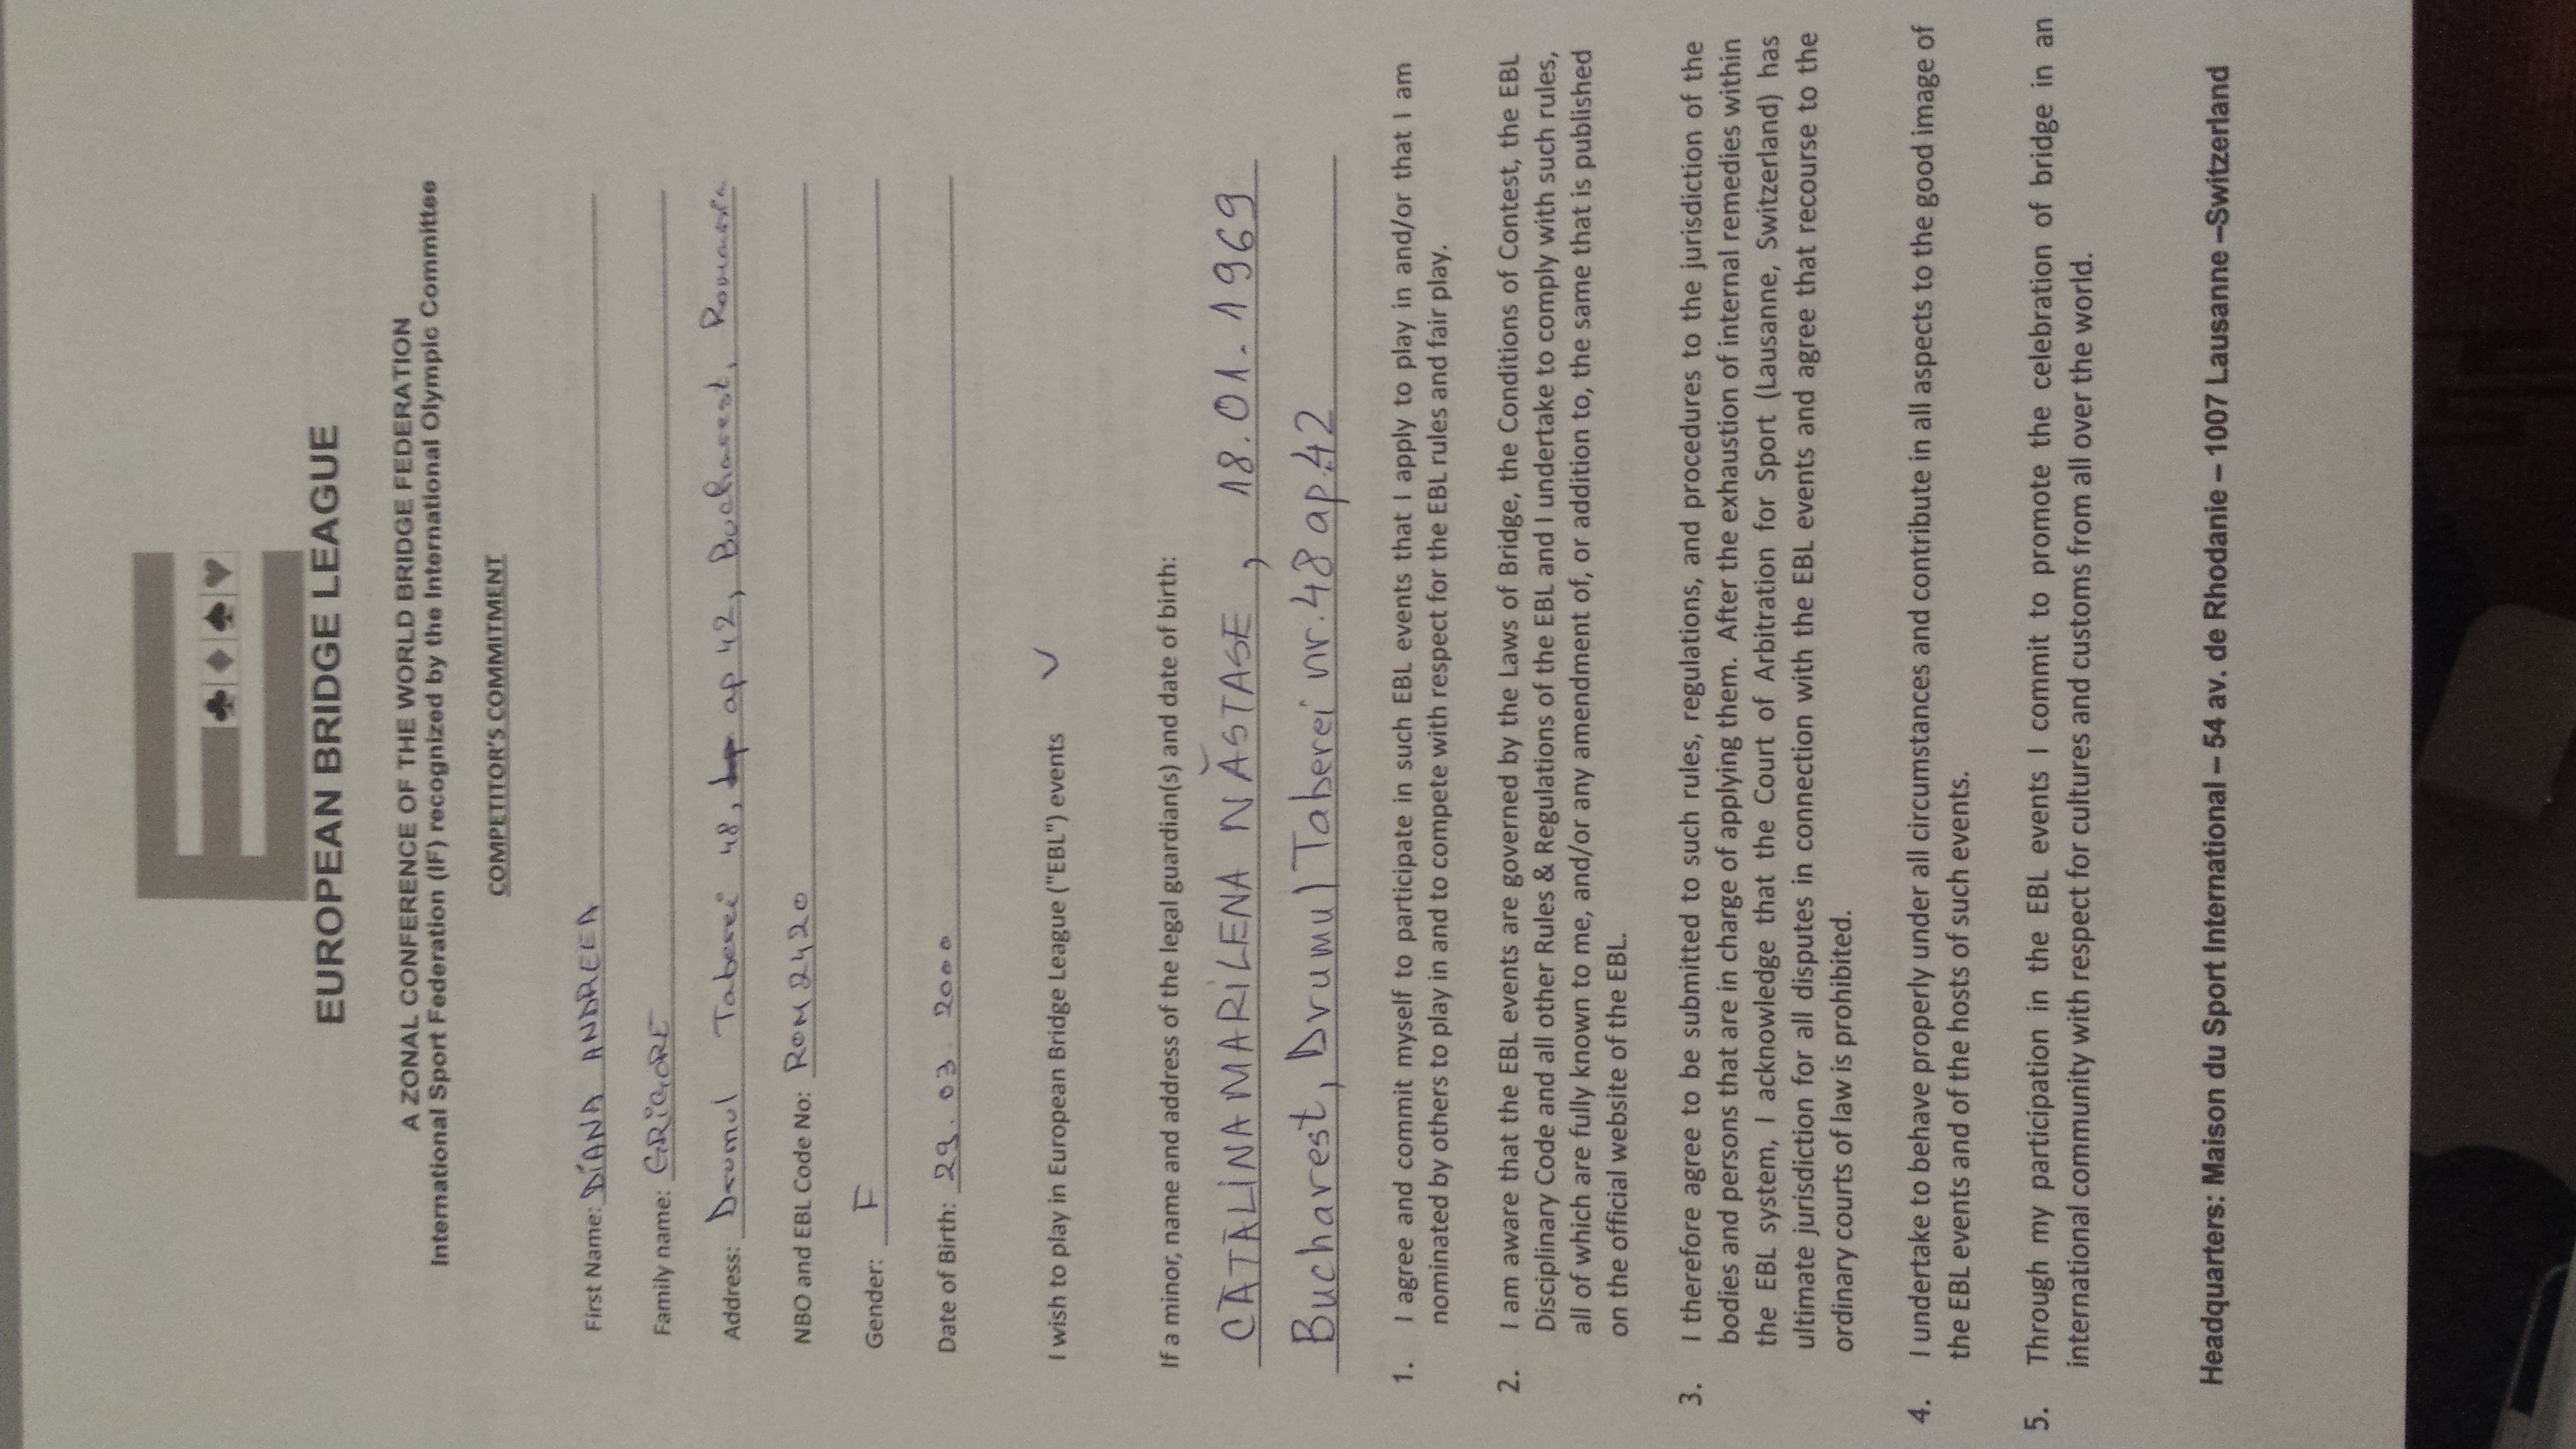 ♣ ♦ ♠ ♥
EUROPEAN BRIDGE LEAGUE
A ZONAL CONFERENCE OF THE WORLD BRIDGE FEDERATION
International Sport Federation (IF) recognized by the International Olympic Committee
COMPETITOR'S COMMITMENT
First Name: DIANA ANDREEA
Family name: GRIGORE
Address: Drumul Taberei 48, ap 42, Bucharest, Romania
NBO and EBL Code No: ROM 2420
Gender: F
Date of Birth: 29. 03. 2000
I wish to play in European Bridge League ("EBL") events ✓
If a minor, name and address of the legal guardian(s) and date of birth:
CĂTĂLINA MARILENA NĂSTASE, 18.01.1969
Bucharest, Drumul Taberei nr. 48 ap. 42
1. I agree and commit myself to participate in such EBL events that I apply to play in and/or that I am
nominated by others to play in and to compete with respect for the EBL rules and fair play.
2. I am aware that the EBL events are governed by the Laws of Bridge, the Conditions of Contest, the EBL
Disciplinary Code and all other Rules & Regulations of the EBL and I undertake to comply with such rules,
all of which are fully known to me, and/or any amendment of, or addition to, the same that is published
on the official website of the EBL.
3. I therefore agree to be submitted to such rules, regulations, and procedures to the jurisdiction of the
bodies and persons that are in charge of applying them. After the exhaustion of internal remedies within
the EBL system, I acknowledge that the Court of Arbitration for Sport (Lausanne, Switzerland) has
ultimate jurisdiction for all disputes in connection with the EBL events and agree that recourse to the
ordinary courts of law is prohibited.
4. I undertake to behave properly under all circumstances and contribute in all aspects to the good image of
the EBL events and of the hosts of such events.
5. Through my participation in the EBL events I commit to promote the celebration of bridge in an
international community with respect for cultures and customs from all over the world.
Headquarters: Maison du Sport International – 54 av. de Rhodanie – 1007 Lausanne –Switzerland